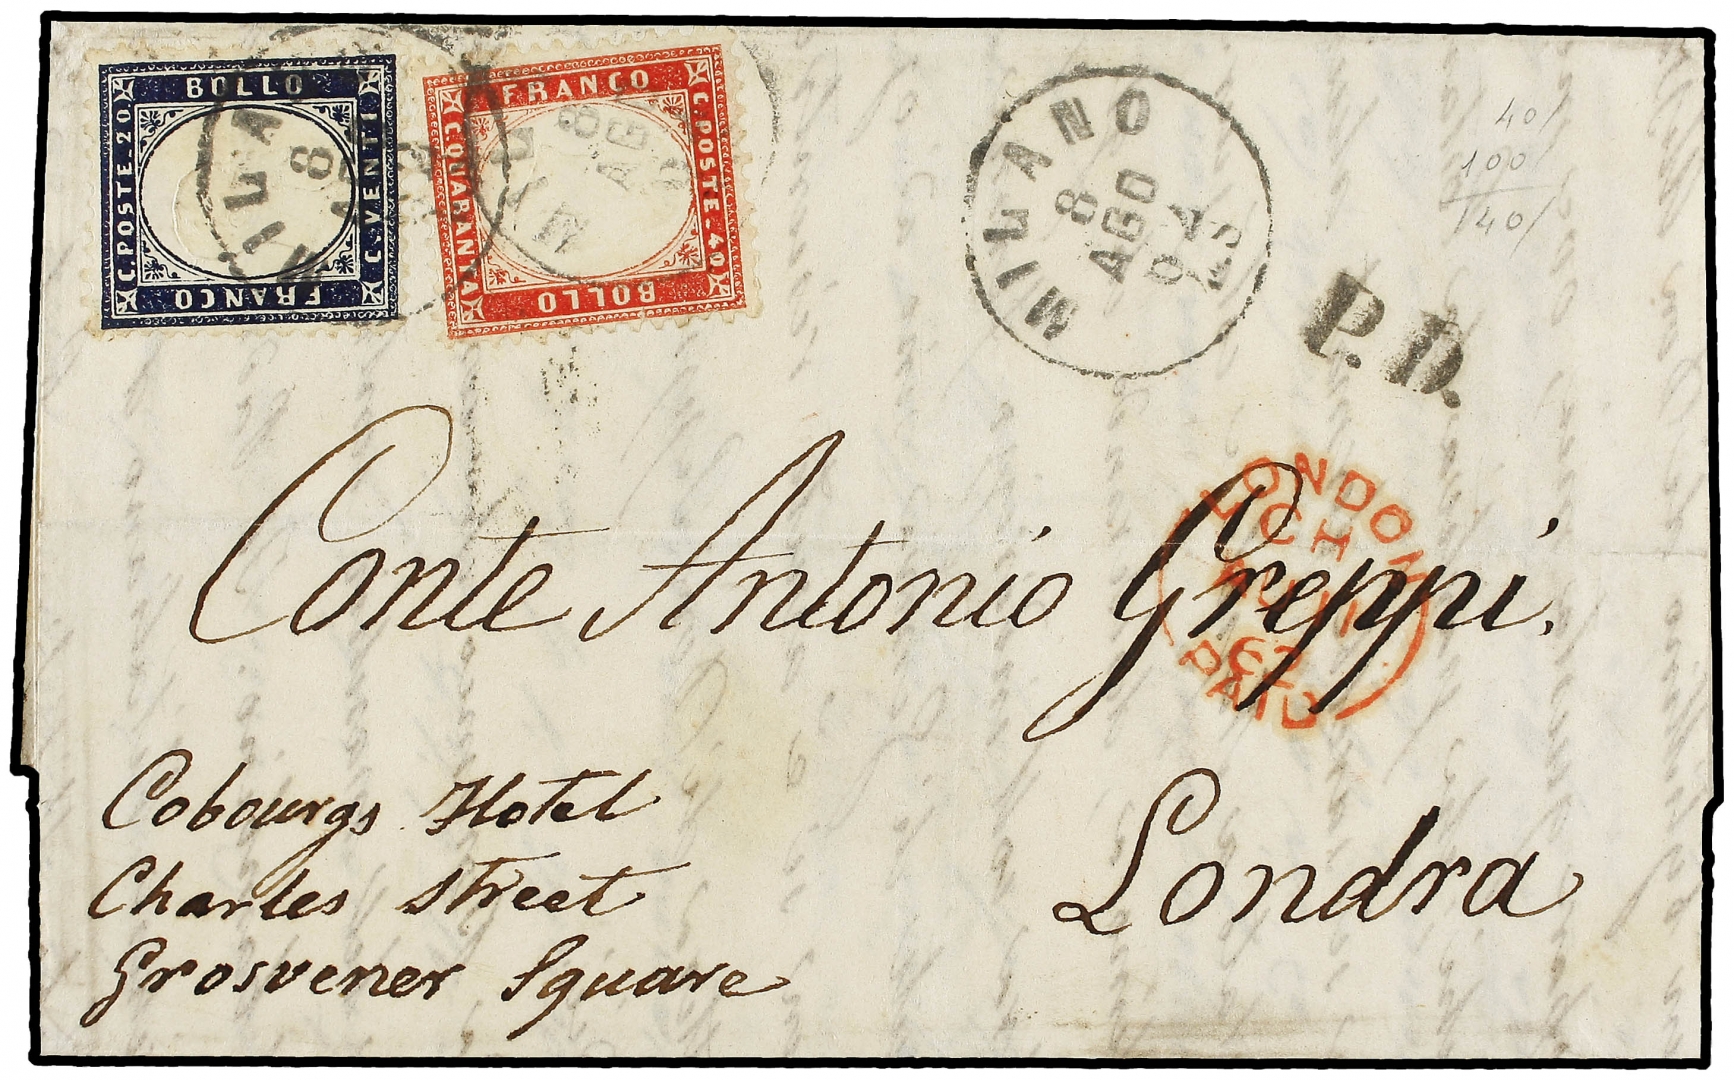 BOLLO
C. POSTE. 20
C. VENTI
FRANCO
FRANCO
C. QUARANTA
C. POSTE. 40
BOLLO
MILA
8
MIL
8
AG
MILANO
8
AGO
40/
100
140/
P.D.
LONDON
CH
62
PAID
Conte Antonio Greppi.
Londra
Cobourgs Hotel
Charles Street
Grosvener Square